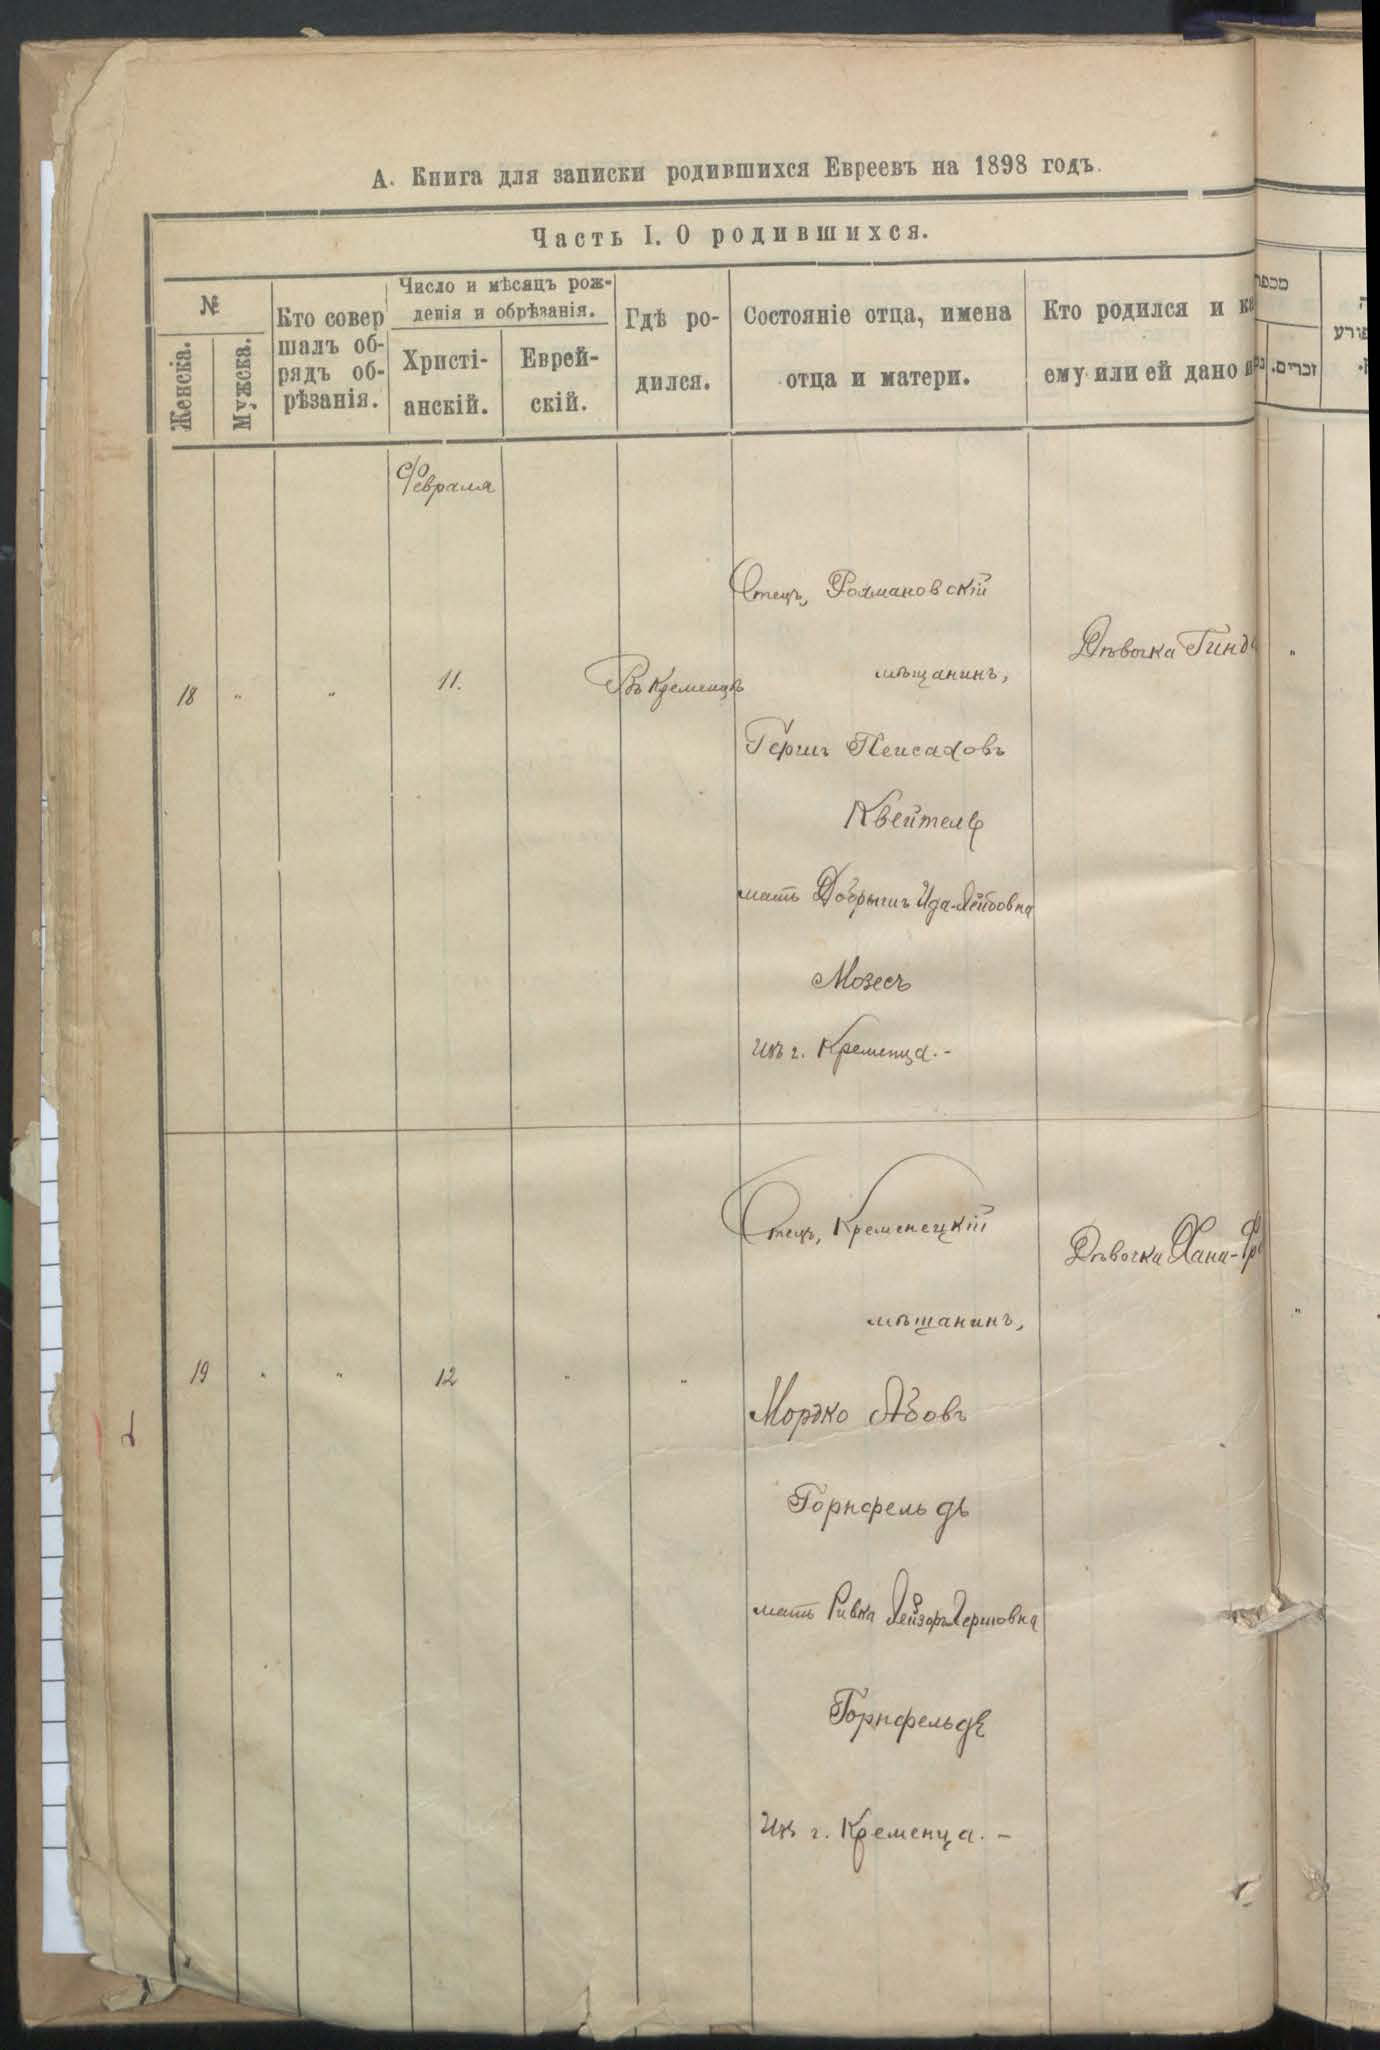 А. Книга для записки родившихся Евреевъ на 1898 годъ.
Часть I. О родившихся.
№
Женска.
Мужска.
Кто совер
шалъ об-
рядъ об-
рѣзанія.
Число и мѣсяцъ рож-
денія и обрѣзанія.
Христі-
анскій.
Еврей-
скій.
Гдѣ ро-
дился.
Состояніе отца, имена
отца и матери.
Кто родился и ка
ему или ей дано и
זכרים.
Февраля
18 " " 11. Въ Кременцѣ
Отецъ, Рахмановскій
мѣщанинъ,
Гершъ Пейсаховъ
Квейтель
мать Ида-Лейбовна
Мозесъ
Изъ г. Кременца.-
Дѣвочка Гинд
"
19 " " 12 " "
Отецъ, Кременецкій
мѣщанинъ,
Мордко Абовъ
Горнфельдъ
мать Ривка Лейзоръ-Гершовна
Горнфельдъ
Изъ г. Кременца.-
Дѣвочка Хана-Фр
"